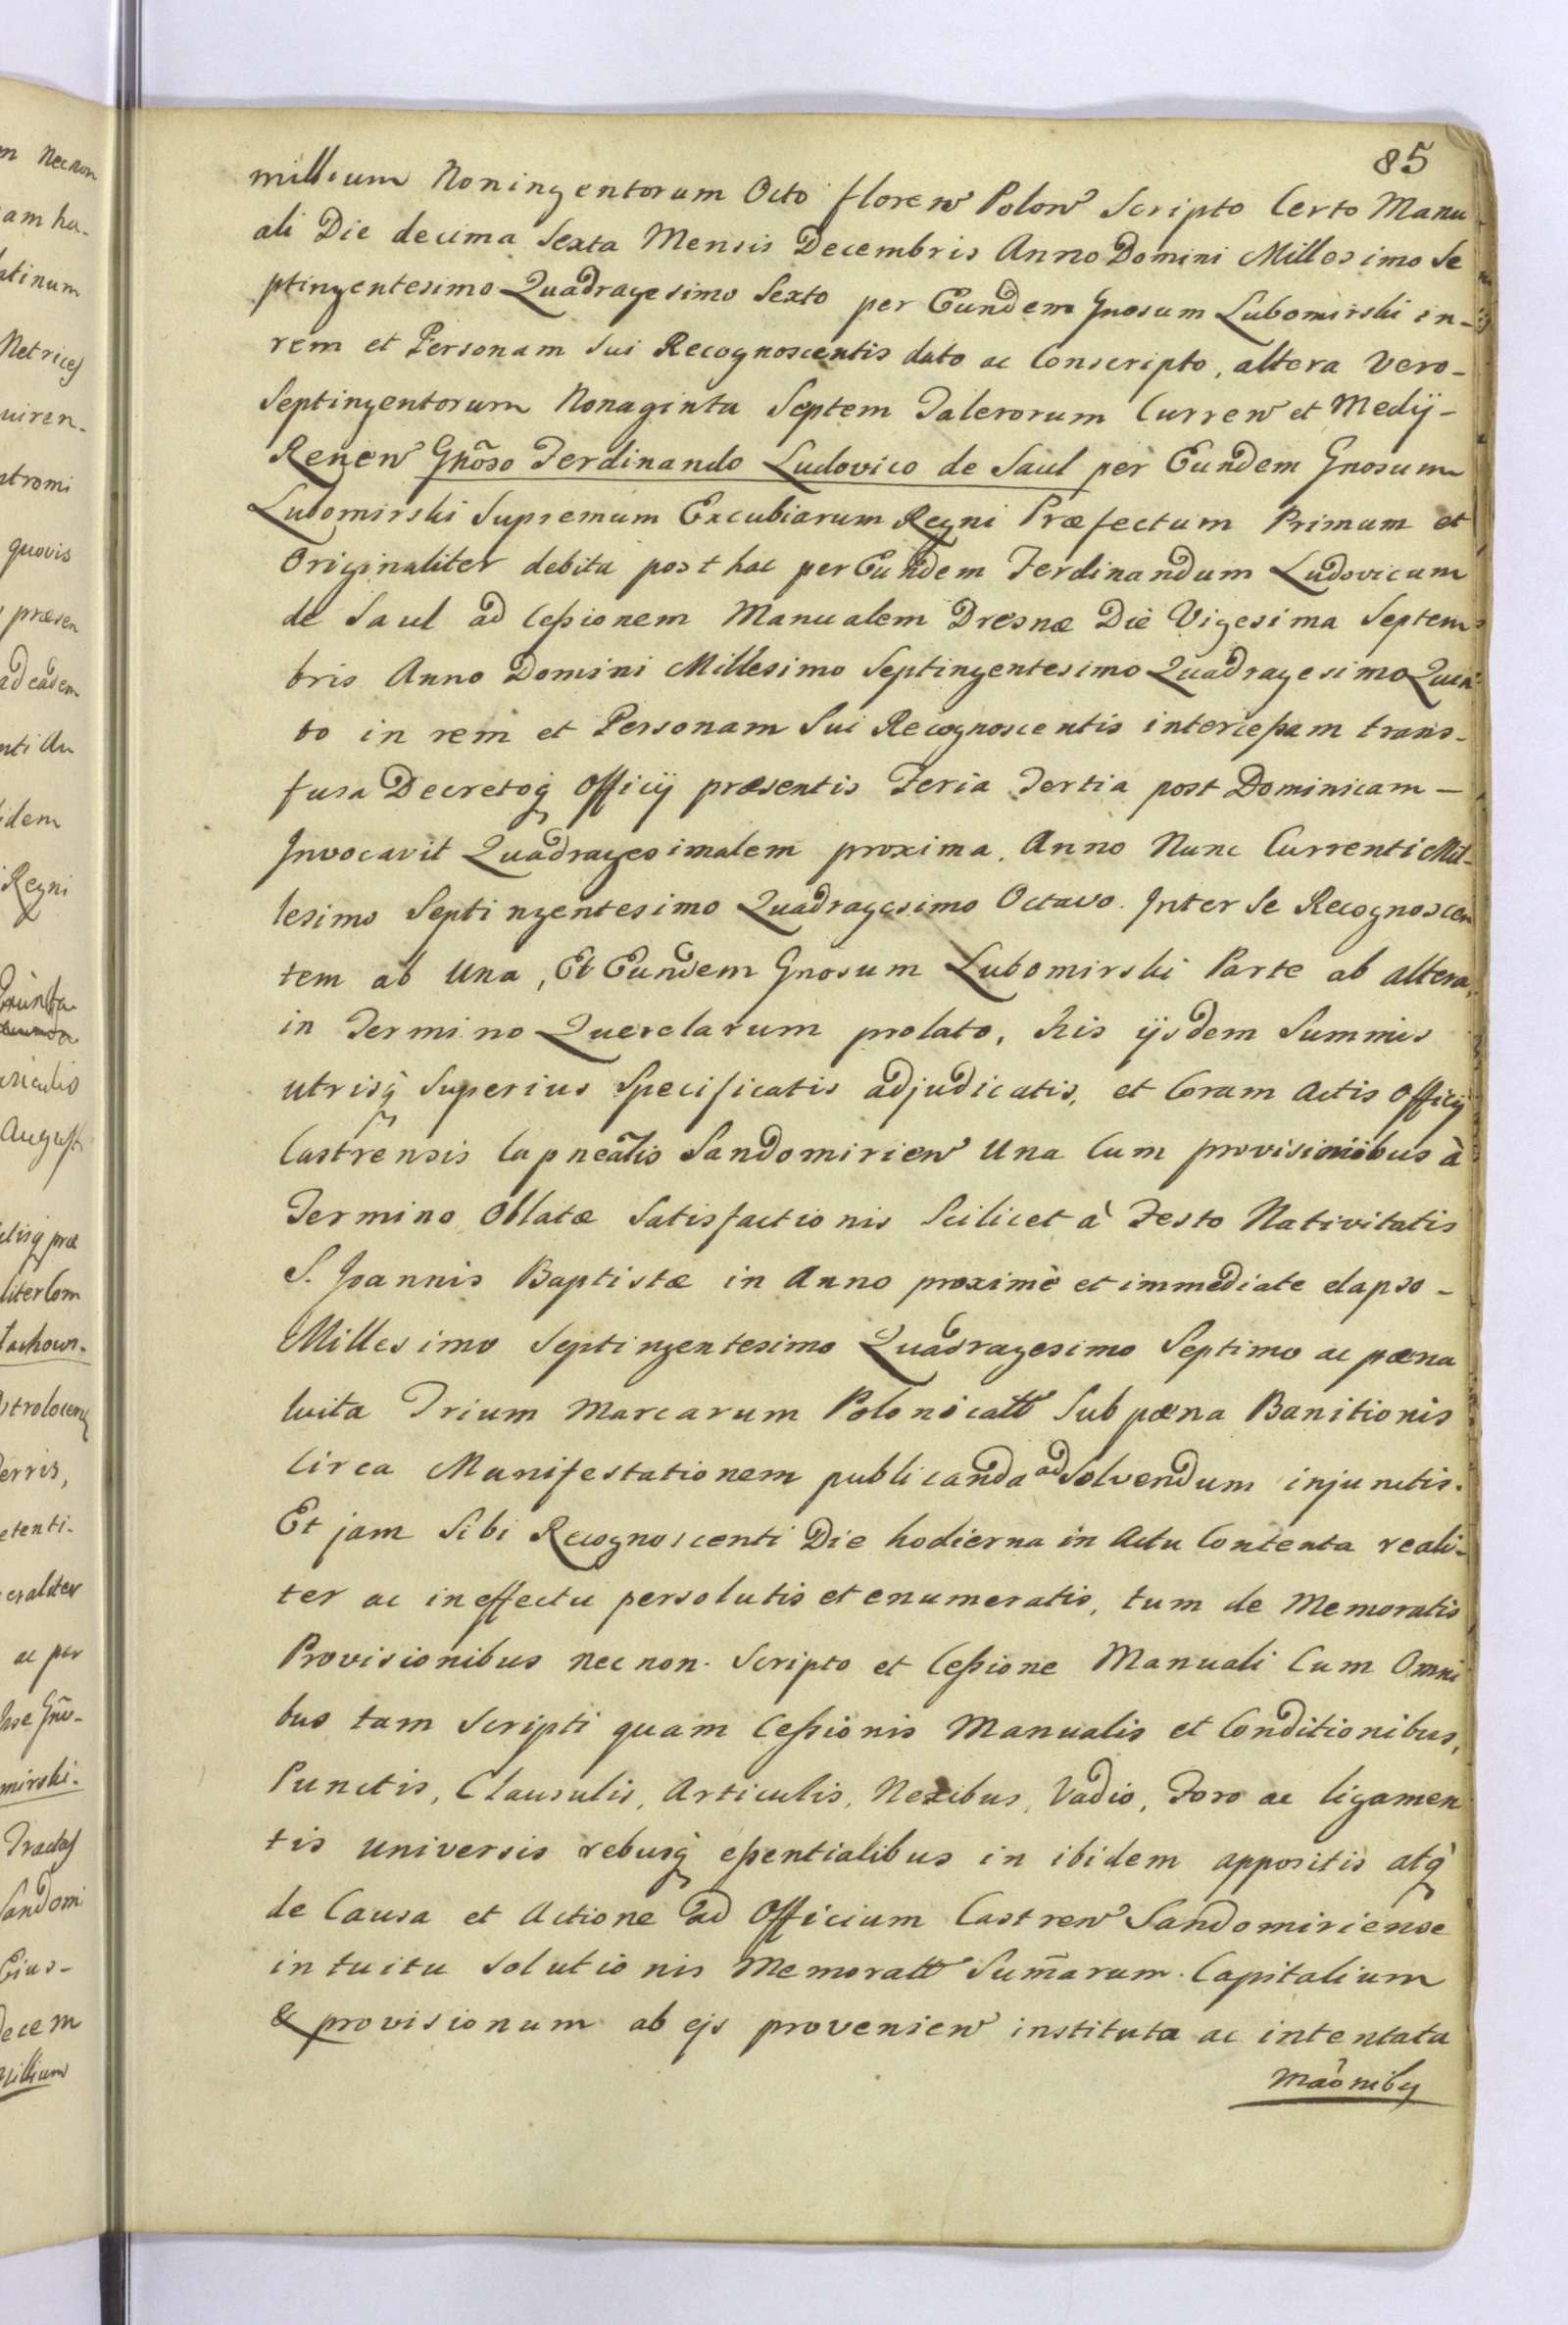 85
millium Noningentorum Octo floren Polon Scripto Certo Manu
ali Die decima Sexta Mensis Decembris Anno Domini Millesimo Se
ptingentesimo Quadragesimo Sexto per Eundem Gnosum Lubomirski in-
rem et Personam Sui Recognoscentis dato ac Conscripto, altera Vero-
Septingentorum Nonaginta Septem Talerorum Curren et Medij-
Renen Gnõso Ferdinando Ludovico de Saul per Eundem Gnosum
Lubomirski Supremum Excubiarum Regni Præfectum Primum et
Originaliter debita post hac per Eundem Ferdinandum Ludovicum
de Saul ad Cessionem Manualem Dresnæ Die Vigesima Septem
bris Anno Domini Millesimo Septingentesimo Quadragesimo Quin
to in rem et Personam Sui Recognoscentis intercessam trans-
fusa Decretoq Officij præsentis Feria Tertia post Dominicam-
Invocavit Quadragesimalem proxima. Anno Nunc Currenti Mil-
lesimo Septingentesimo Quadragesimo Octavo. Inter Se Recognoscen
tem ab Una, Et Eundem Gnosum Lubomirski Parte ab altera,
in Termino Querelarum prolato, his ijsdem Summis
utrisq Superius Specificatis adjudicatis, et Coram Actis Officij
Castrensis Capneãlis Sandomirien Una Cum provisionibus à
Termino Oblatæ Satisfactionis Scilicet à Festo Nativitatis
S. Joannis Baptistæ in Anno proximè et immediate elapso-
Millesimo Septingentesimo Quadragesimo Septimo ac pœna
luita Trium Marcarum Polonicatt Sub pœna Banitionis
Circa Manifestationem publicanda ad Solvendum injunctis.
Et jam Sibi Recognoscenti Die hodierna in Actu Contenta reali-
ter ac in effectu persolutis et enumeratis, tum de Memoratis
Provisionibus nec non Scripto et Cessione Manuali Cum Omni
bus tam Scripti quam Cessionis Manualis et Conditionibus,
Punctis, Clausulis, Articulis, Nexibus, Vadio, Foro ac ligamen
tis universis rebusq essentialibus in ibidem appositis atq
de Causa et Actione ad Officium Castren Sandomiriense
intuitu solutionis Memoratt Sum̃arum Capitalium
& provisionum ab ejs provenien instituta ac intentata